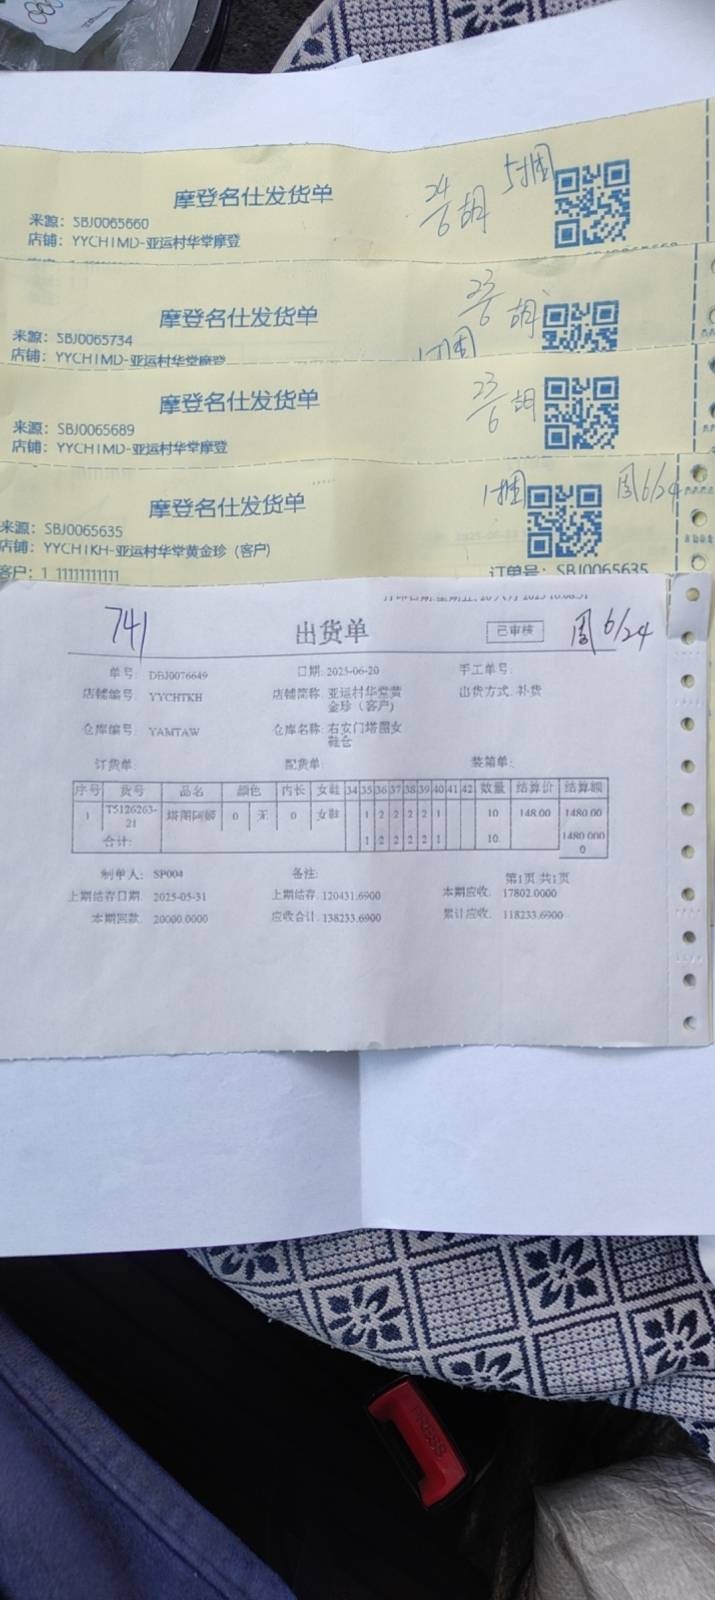 摩登名仕发货单
24/6 胡 5捆
来源：SBJ0065660
店铺：YYCHIMD-亚运村华堂摩登
摩登名仕发货单
23/6 胡
来源：SBJ0065734
店铺：YYCHIMD-亚运村华堂摩登
摩登名仕发货单
23/6 胡
来源：SBJ0065689
店铺：YYCHIMD-亚运村华堂摩登
摩登名仕发货单
1捆 周6/24
来源：SBJ0065635
店铺：YYCHIKH-亚运村华堂黄金珍（客户）
客户：1 11111111111
订单号：SBJ0065635
741 出货单 已审核 周6/24
单号： DBJ0076649 日期：2025-06-20 手工单号：
店铺编号： YYCHTKH 店铺简称：亚运村华堂黄金珍（客户） 出货方式：补货
仓库编号： YAMTAW 仓库名称：右安门塔图女鞋仓
订货单： 配货单： 装箱单：
序号 货号 品名 颜色 内长 女鞋 34 35 36 37 38 39 40 41 42 数量 结算价 结算额
1 T5126263-21 塔图阿姬 0 无 0 女鞋 1 2 2 2 2 1 10 148.00 1480.00
合计： 1 2 2 2 2 1 10 1480.0000
制单人： SP004 备注： 第1页 共1页
上期结存日期： 2025-05-31 上期结存：120431.6900 本期应收： 17802.0000
本期回款： 20000.0000 应收合计：138233.6900 累计应收： 118233.6900
PRESS